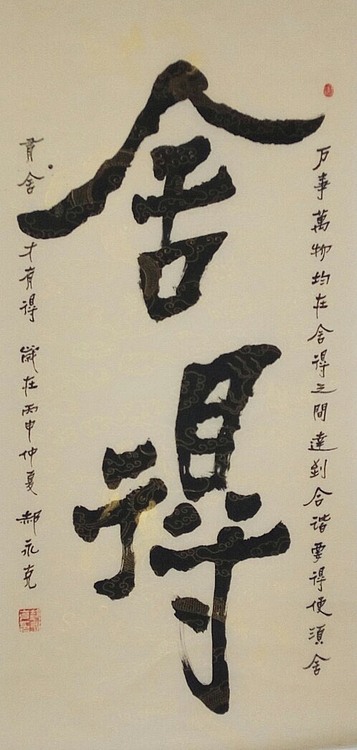 舍得
万事萬物均在舍得之間達到合谐要得便須舍
有舍才有得 歲在丙申仲夏 郝永克